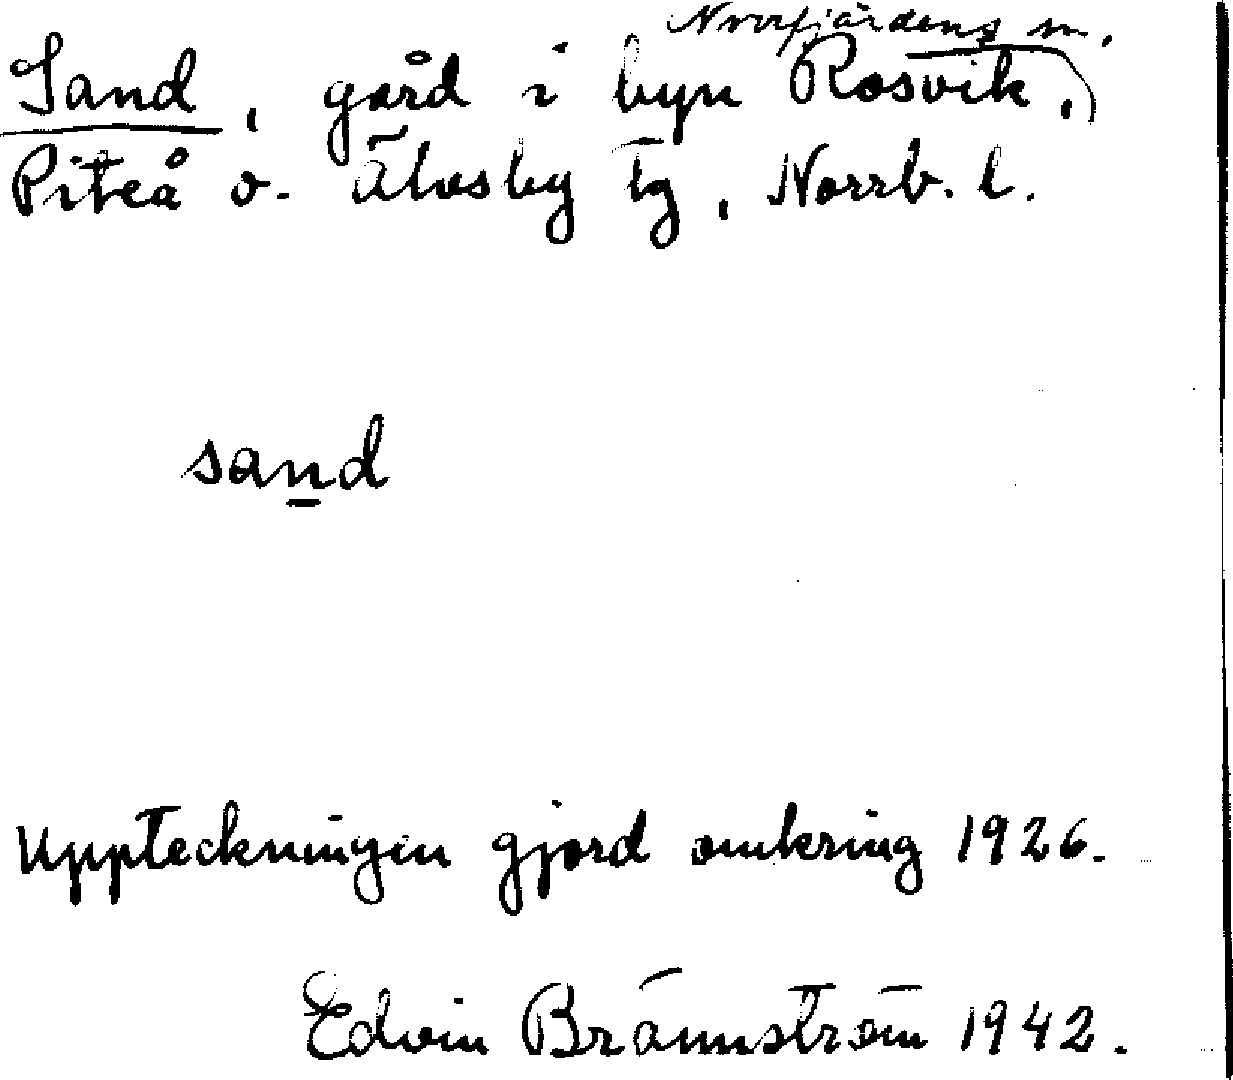 Norrfjärdens sn.
Sand, gård i byn Rosvik,
Piteå o. Älvsby tg, Norrb. l.
sand
Uppteckningen gjord omkring 1926.
Edvin Brännström 1942.